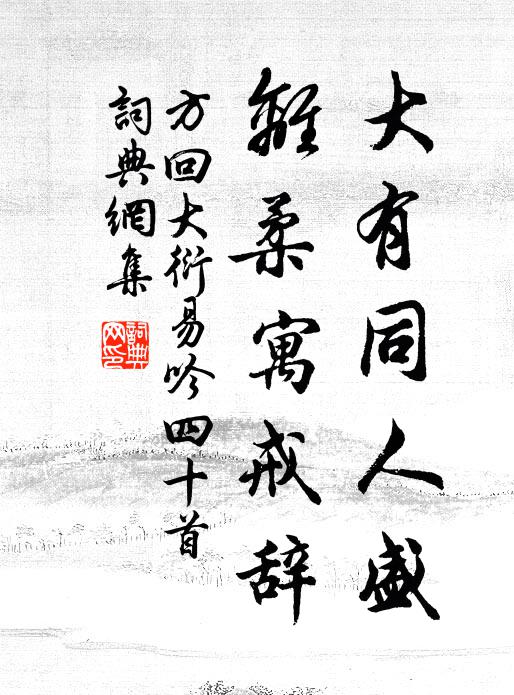 大有同人盛
離柔寓戒辞
方回大衍易吟四十首
詞典網集
詞典
网印